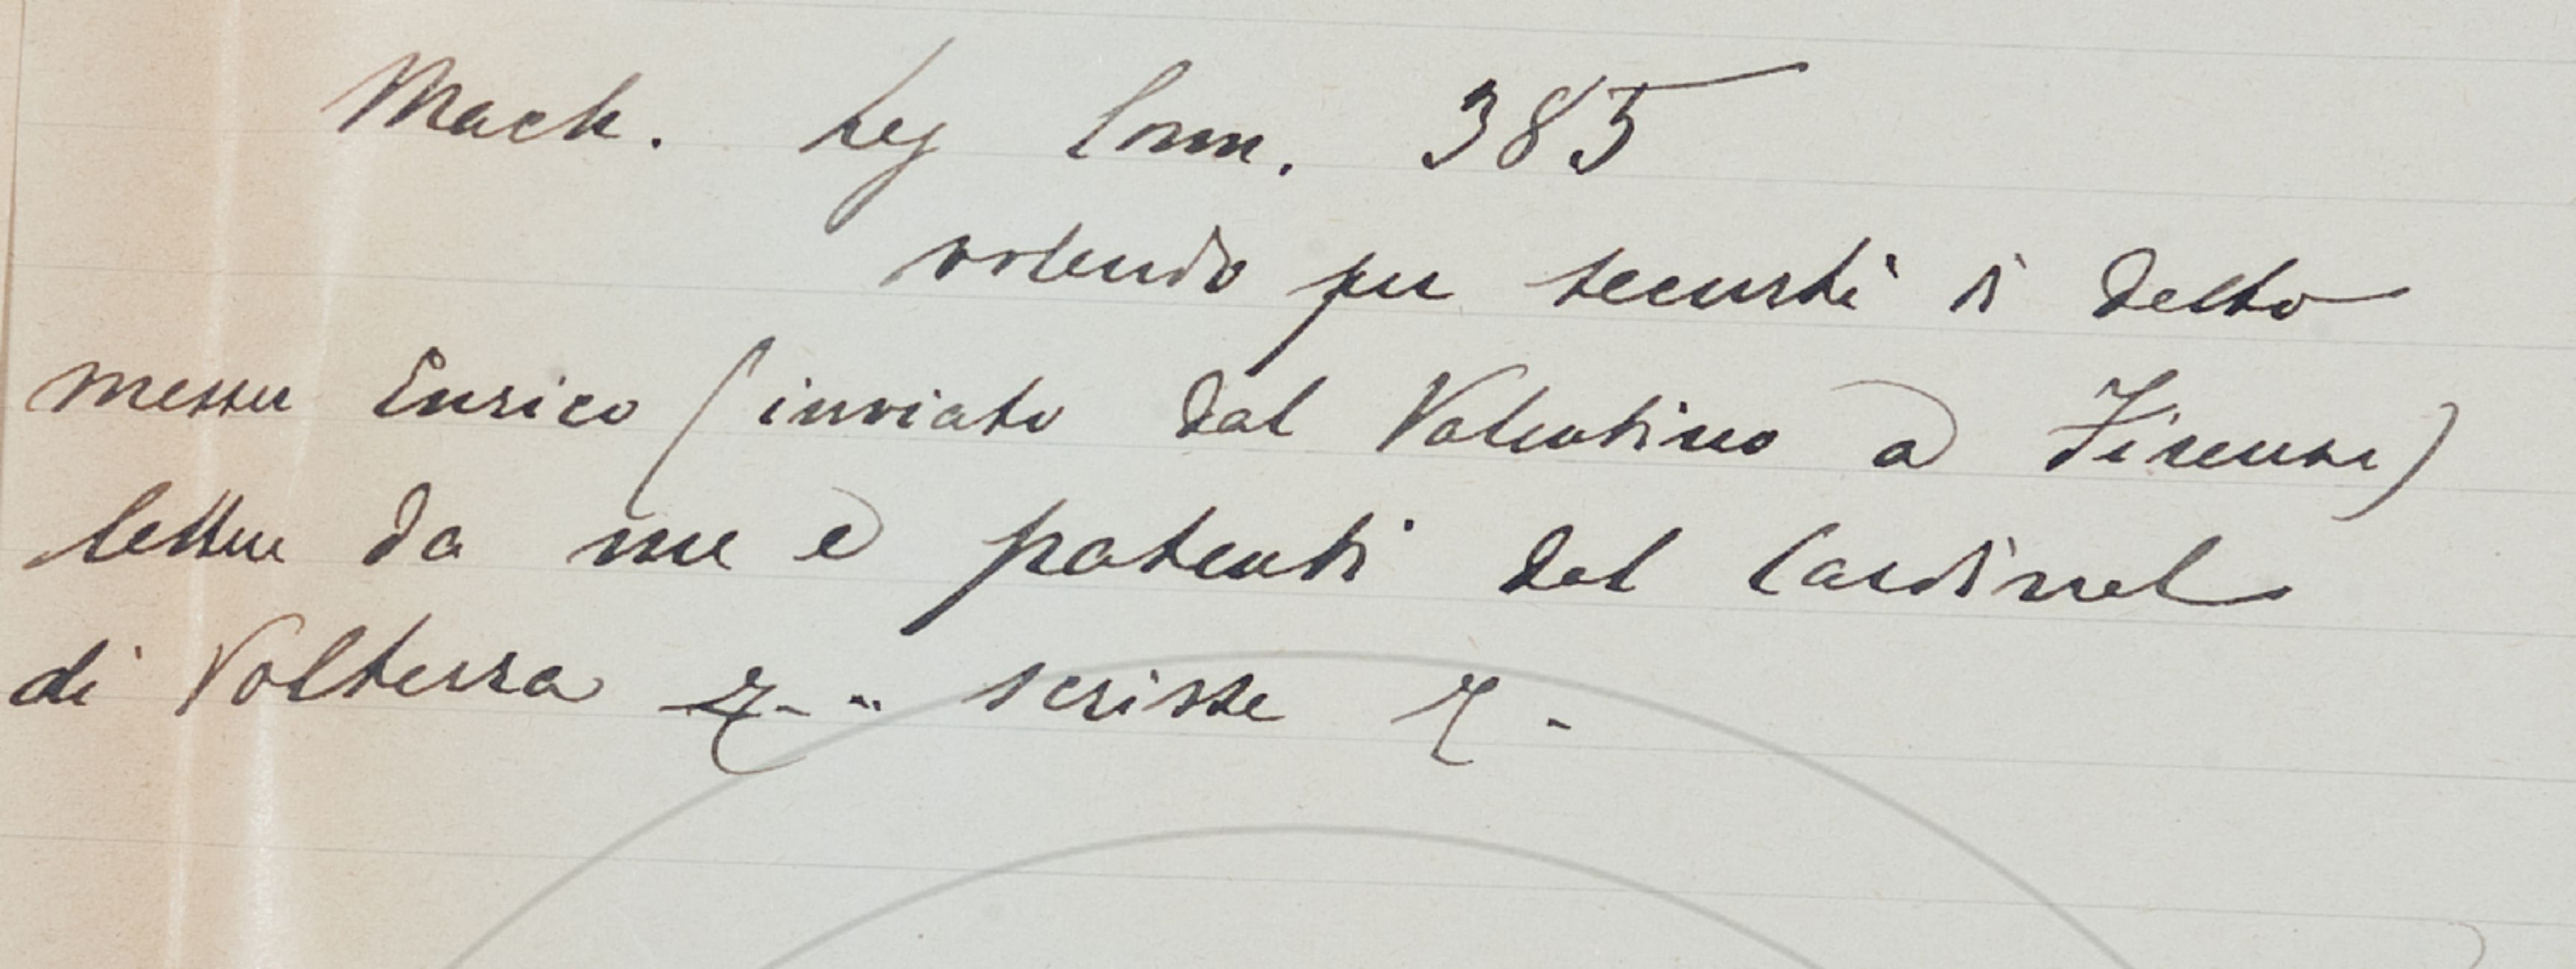 Mach. Leg Comm. 385
volendo per securtà di detto
messer Enrico (inviato dal Valentino a Firenze)
lettere da me e patenti dal Cardinal
di Volterra scrisse